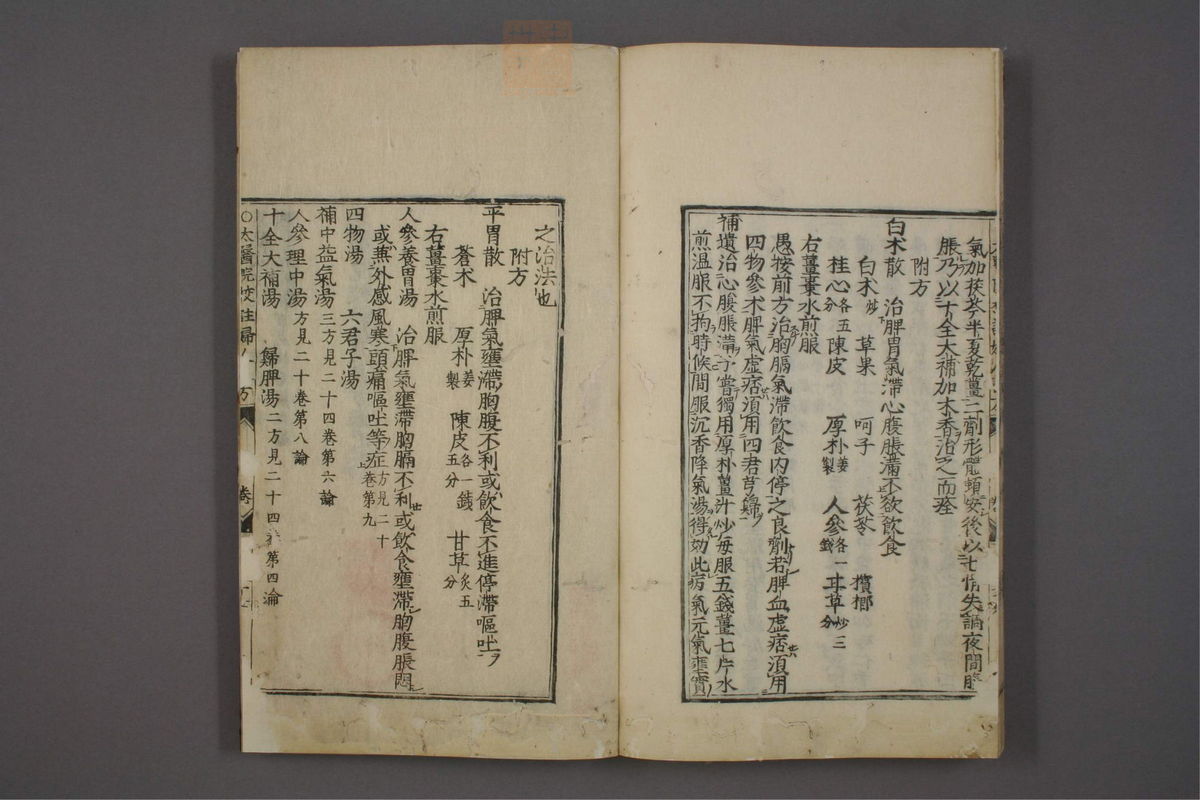 氣加茯苓半夏乾薑二劑形體頓安後以七情失調夜間腹
脹乃以十全大補加木香治之而痊
附方
白朮散 治脾胃氣滯心腹脹滿不欲飲食
白朮炒 草果 呵子 茯苓 檳榔
桂心各五分 陳皮 厚朴姜製 人參各一錢 甘草炒三分
右薑棗水煎服
愚按前方治胸膈氣滯飲食内停之良劑若脾血虛痞須用
四物參朮脾氣虛痞須用四君芎歸
補遺治心腹脹滿予嘗獨用厚朴薑汁炒每服五錢薑七片水
煎溫服不拘時候間服沉香降氣湯得効此病氣元氣壅實
之治法也
附方
平胃散 治脾氣壅滯胸腹不利或飲食不進停滯嘔吐
蒼朮 厚朴姜製 陳皮各一錢五分 甘草炙五分
右薑棗水煎服
人參養胃湯 治脾氣壅滯胸膈不利或飲食壅滯胸腹脹悶
或蒸外感風寒頭痛嘔吐等症方見二十卷第九
四物湯 六君子湯
補中益氣湯三方見二十四卷第六論
人參理中湯方見二十卷第八論
十全大補湯 歸脾湯二方見二十四卷第四論
○太醫院校註婦人 方 卷